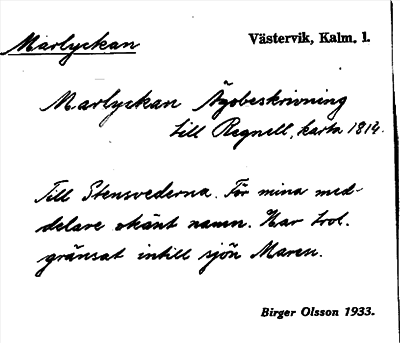 Marlyckan
Västervik, Kalm. l.
Marlyckan Ägobeskrivning
till Regnell, karta 1814.
Till Stensvederna. För mina med-
delare okänt namn. Har trol.
gränsat intill sjön Maren.
Birger Olsson 1933.